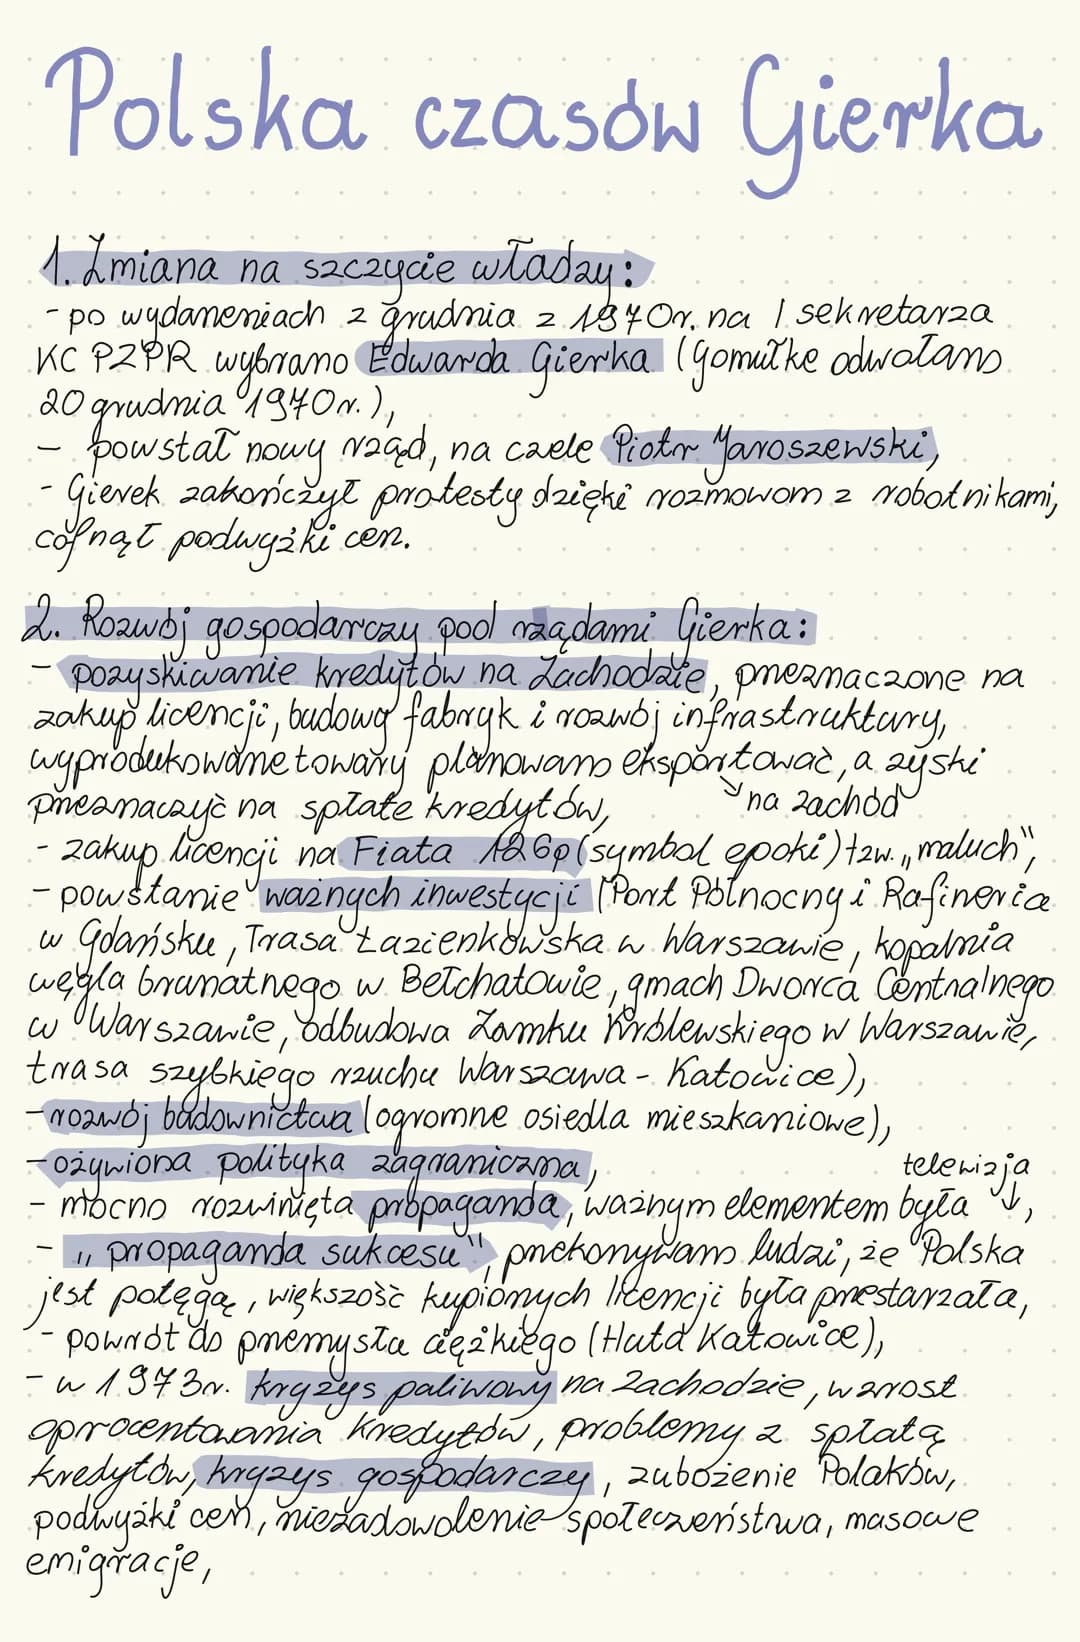 Polska czasów Gierka
1. Zmiana na szczycie władzy:
- po wydarzeniach z grudnia z 1970r. na I sekretarza
KC PZPR wybrano Edwarda Gierka (Gomułkę odwołano
20 grudnia 1970r.),
- powstał nowy rząd, na czele Piotr Jaroszewski,
- Gierek zakończył protesty dzięki rozmowom z robotnikami,
cofnął podwyżki cen.
2. Rozwój gospodarczy pod rządami Gierka:
- pozyskiwanie kredytów na Zachodzie, przeznaczone na
zakup licencji, budowę fabryk i rozwój infrastruktury,
wyprodukowane towary planowano eksportować, a zyski
przeznaczyć na spłatę kredytów, ↘ na zachód
- zakup licencji na Fiata 126p (symbol epoki) tzw. „maluch",
- powstanie ważnych inwestycji (Port Północny i Rafineria
w Gdańsku, Trasa Łazienkowska w Warszawie, kopalnia
węgla brunatnego w Bełchatowie, gmach Dworca Centralnego
w Warszawie, odbudowa Zamku Królewskiego w Warszawie,
trasa szybkiego rzuchu Warszawa - Katowice),
- rozwój budownictwa (ogromne osiedla mieszkaniowe),
- ożywiona polityka zagraniczna,
telewizja
- mocno rozwinięta propaganda, ważnym elementem była ↓,
- „propaganda sukcesu", przekonywano ludzi, że Polska
jest potęgą, większość kupionych licencji była przestarzała,
- powrót do przemysłu ciężkiego (Huta Katowice),
- w 1973r. kryzys paliwowy na Zachodzie, wzrost
oprocentowania kredytów, problemy z spłatą
kredytów, kryzys gospodarczy, zubożenie Polaków,
podwyżki cen, niezadowolenie społeczeństwa, masowe
emigracje,